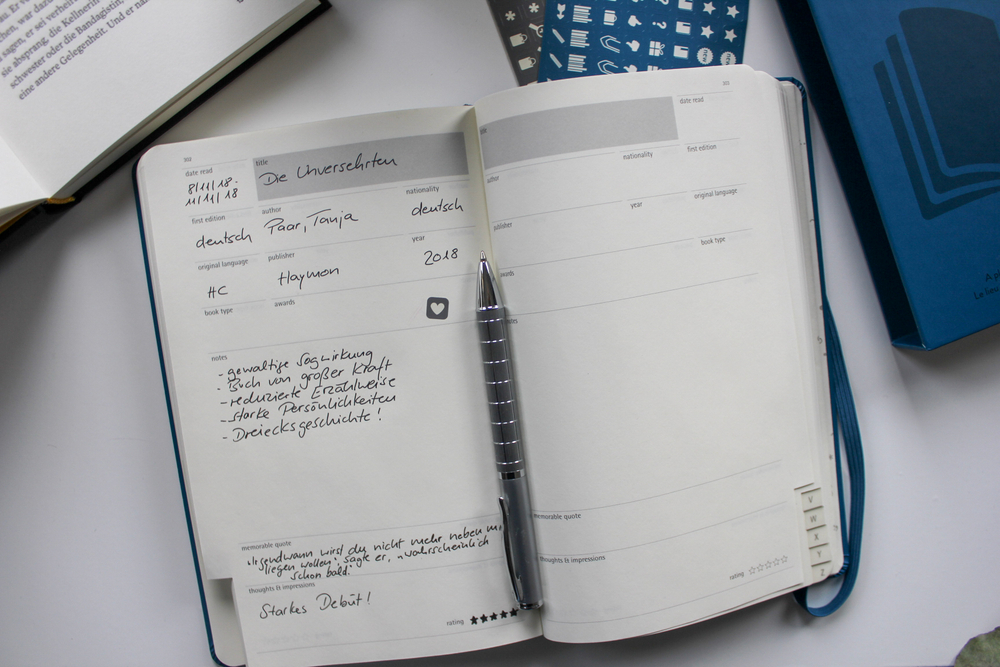 sagen, er sei verheir
sie absprang, die Kellnerin
schwester oder die Bandagistin.
eine andere Gelegenheit. Und er na
date read
title
Die Unversehrten
8/11/18 -
11/11/18
first edition
author
nationality
deutsch
Paar, Tanja
deutsch
original language
publisher
year
HC
Haymon
2018
book type
awards
notes
- gewaltige Sogwirkung
- Buch von großer Kraft
- reduzierte Erzählweise
- starke Persönlichkeiten
- Dreiecksgeschichte!
memorable quote
"Irgendwann wirst du nicht mehr neben m
liegen wollen", sagte er, "wahrscheinlich
schon bald."
thoughts & impressions
Starkes Debüt!
rating ★★★★★
date read
nationality
first edition
author
publisher
year
original language
book type
notes
memorable quote
thoughts & impressions
rating ☆☆☆☆☆
V
W
X
Y
Z